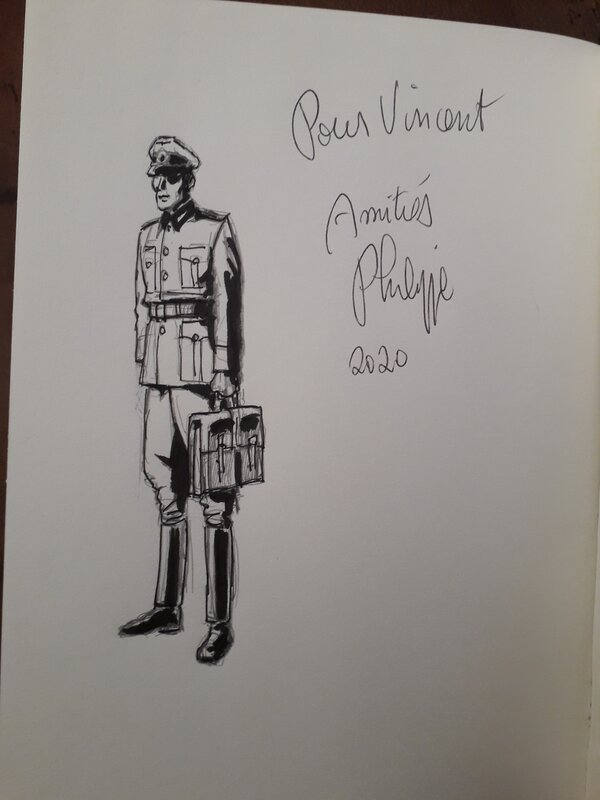 Pour Vincent
Amitiés
Philippe
2020